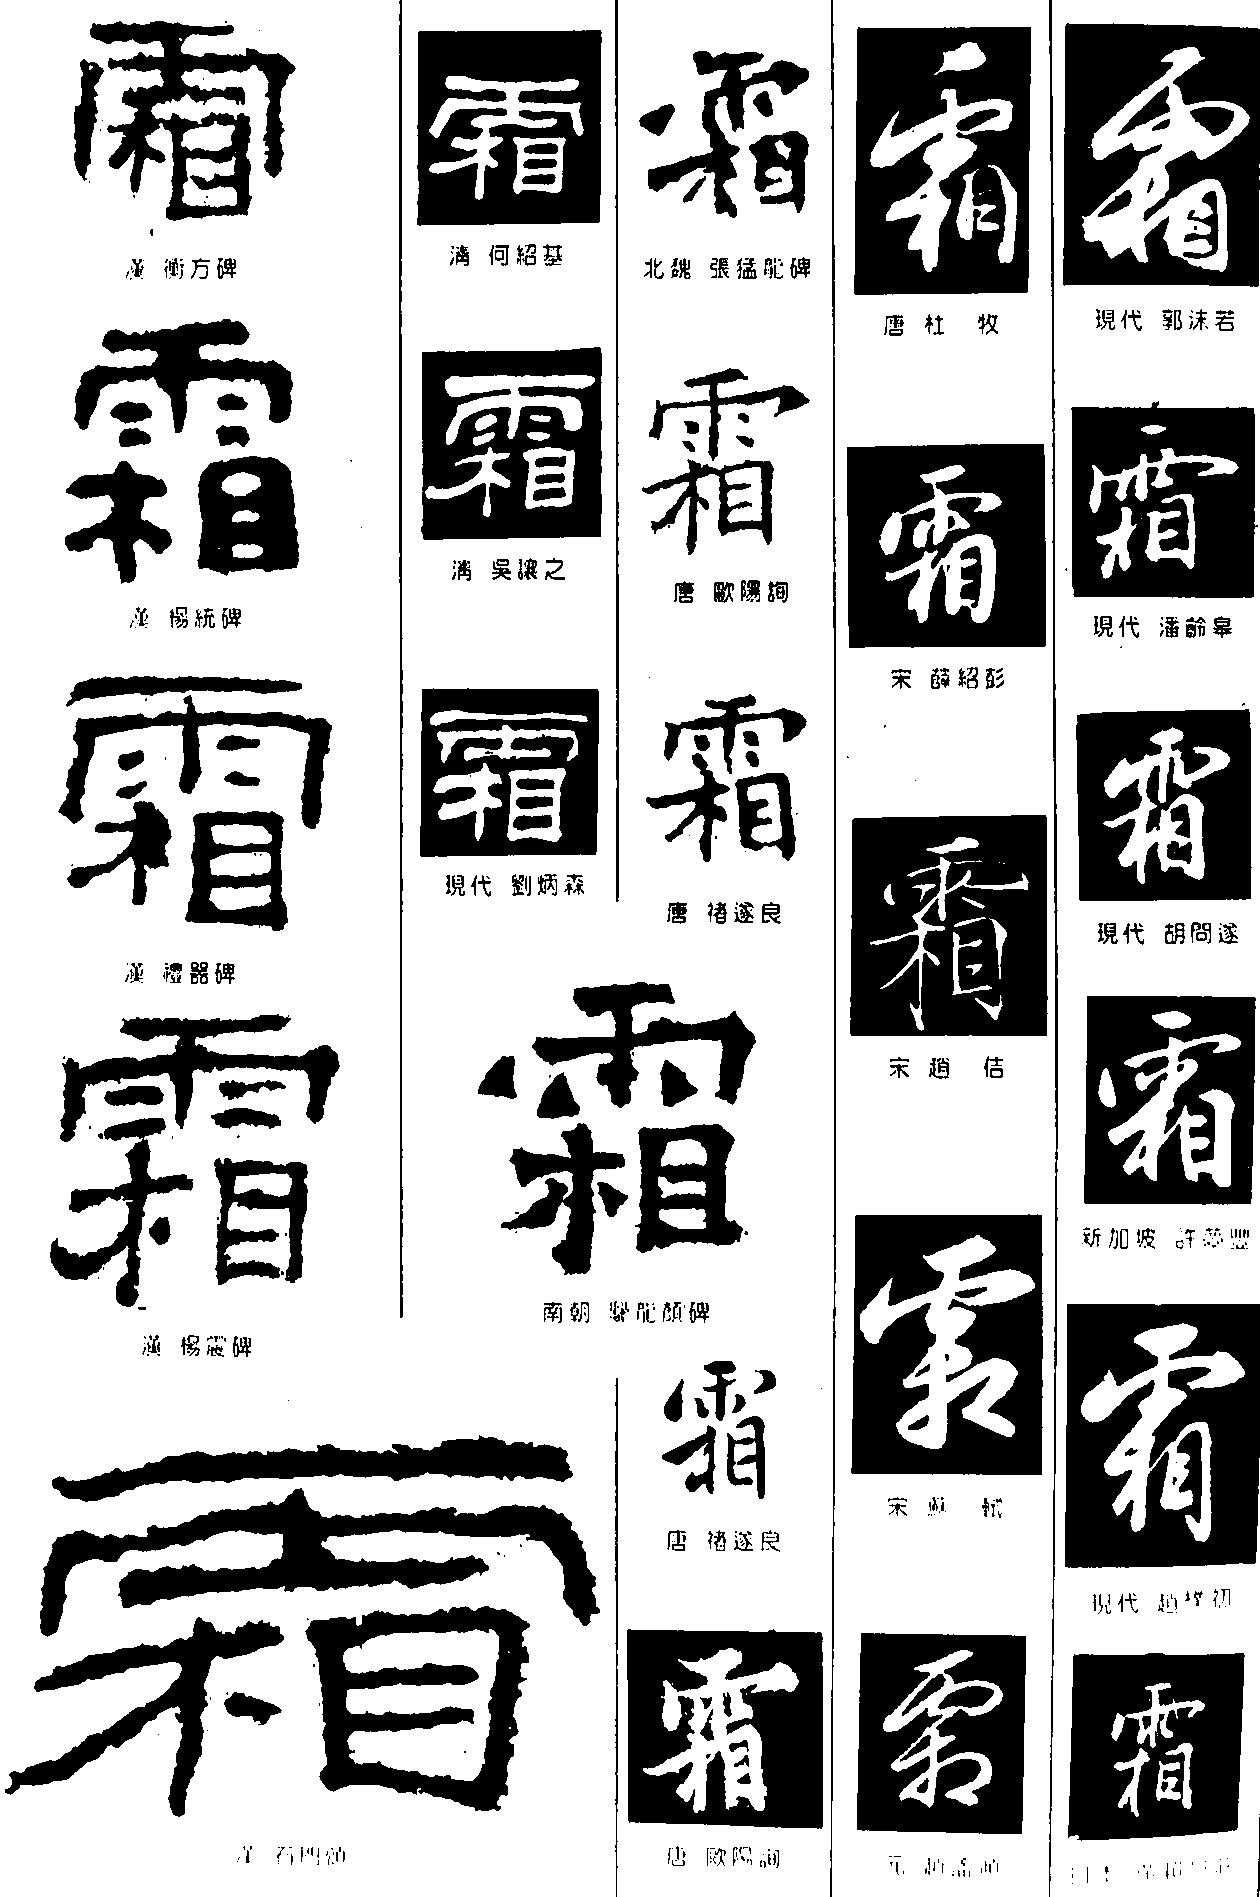 霜
漢 衡方碑
霜
漢 楊統碑
霜
漢 禮器碑
霜
漢 楊震碑
霜
漢 石門頌
霜
清 何紹基
霜
清 吳讓之
霜
現代 劉炳森
霜
南朝 爨龍顏碑
霜
北魏 張猛龍碑
霜
唐 歐陽詢
霜
唐 褚遂良
霜
唐 褚遂良
霜
唐 歐陽詢
霜
唐 杜 牧
霜
宋 薛紹彭
霜
宋 趙 佶
霜
宋 蘇 軾
霜
元 趙孟頫
霜
現代 郭沫若
霜
現代 潘齡皋
霜
現代 胡問遂
霜
新加坡 許夢豐
霜
現代 趙樸初
霜
日本